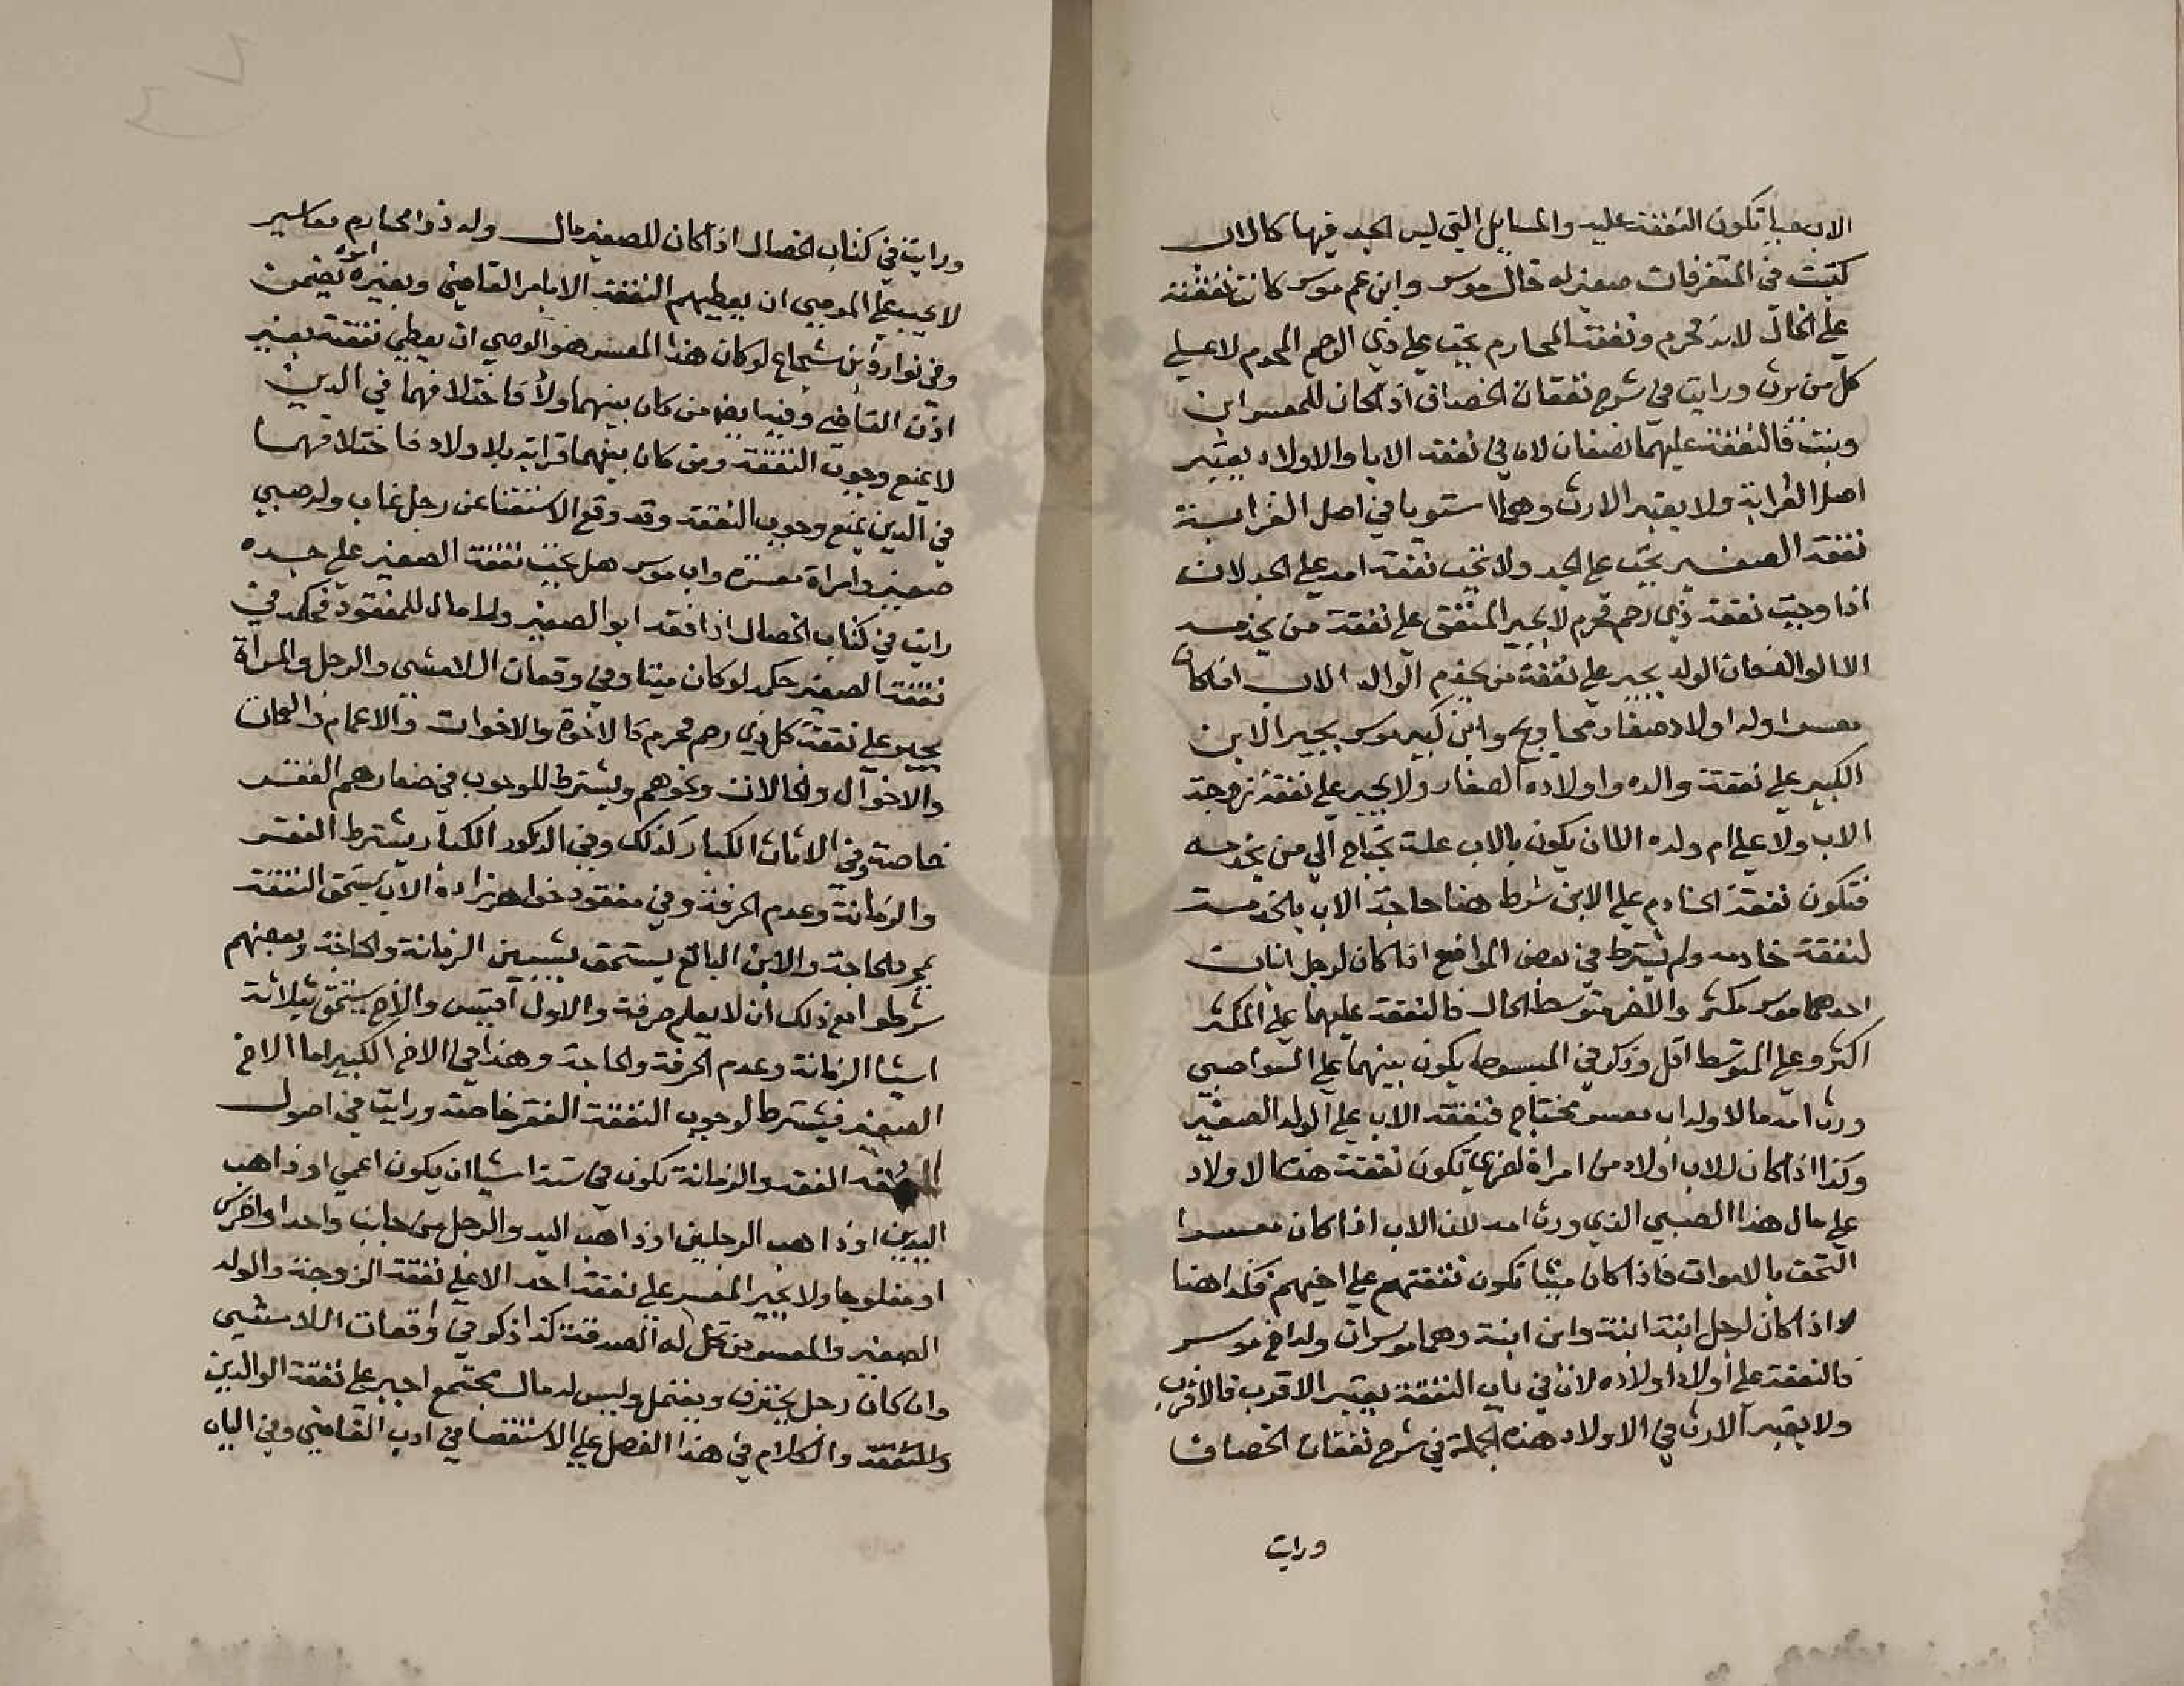 الاب عبيا تكون النفقة عليه والمسايل التي ليس الجد فيها كالاب
كتبت في المتفرقات صغير له خال موسر وابن عم موسر كانت نفقته
على الخال لانه محرم ونفقة المحارم تجب على ذي الرحم المحرم لا على
كل من يرث ورايت في شرح نفقات الخصاف اذا كان للمعسر ابن
وبنت فالنفقة عليهما نصفان لان في نفقة الابا والاولاد يعتبر
اصل القرابة ولا يعتبر الارث وهما استويا في اصل القرابة
نفقة الصغير تجب على الجد ولا تجب نفقة امه على الجد لان
اذا وجبت نفقة ذي رحم محرم لا يجبر المنفق على نفقة من يخدمه
الا الوالد فان الولد يجبر على نفقة من يخدم الوالد الاب اذا كان
معسرا وله اولاد صغار محاويج وابن كبير موسر يجبر الابن
الكبير على نفقة والده واولاده الصغار ولا يجبر على نفقة زوجة
الاب ولا على ام ولده الا ان يكون بالاب علة يحتاج الى من يخدمه
فتكون نفقة الخادم على الابن شرط هنا حاجة الاب بالخدمة
لنفقة خادمه ولم يشترط في بعض المواضع اذا كان لرجل ابنان
احدهما موسر مكثر والاخر متوسط الحال فالنفقة عليهما على المكثر
اكثر وعلى المتوسط اقل وذكر في المبسوط يكون بينهما على السوا صبي
ورث امه مالا وله اب معسر محتاج فنفقة الاب على الولد الصغير
وكذا اذا كان للاب اولاد من امراة اخرى تكون نفقة هذه الاولاد
على مال هذا الصبي الذي ورث امه لان الاب اذا كان معسرا
التحق بالاموات فاذا كان ميتا تكون نفقتهم على اخيهم فكذا هنا
اذا كان لرجل ابنة ابنة وابن ابنة وهما موسران وله اخ موسر
فالنفقة على اولاد اولاده لان في باب النفقة يعتبر الاقرب فالاقرب
ولا يعتبر الارث في الاولاد هذه الجملة في شرح نفقات الخصاف
ورايت
ورايت في كتاب الخصال اذا كان للصغير مال وله ذوا محارم معاسير
لا يجب على الموصي ان يعطيهم النفقة الا بامر القاضي وبغير امره يضمن
وفي نوادر بن شجاع لو كان هذا المعسر هو الوصي ان يعطي نفقته بغير
اذن القاضي وفيه ايضا من كان بينهما ولاد فاختلافهما في الدين
لا يمنع وجوب النفقة ومن كان بينهما قرابة بلا ولاد فاختلافهما
في الدين يمنع وجوب النفقة وقد وقع الاستفتا عن رجل غاب وله صبي
صغير وامراة معسرة واب موسر هل تجب نفقة الصغير على جده
رايت في كتاب الخصال اذا فقد ابو الصغير ولا مال للمفقود فحكمه في
نفقة الصغير حكمه لو كان ميتا وفي وقعات اللامشي والرجل والمراة
يجبر على نفقة كل ذي رحم محرم كالاخوة والاخوات والاعمام والعمات
والاخوال والخالات ونحوهم ويشترط للوجوب في صغارهم الفقر
خاصة وفي الاناث الكبار كذلك وفي الذكور الكبار يشترط الفقر
والزمانة وعدم الحرفة وفي مفقود خواهر زاده الاب يستحق النفقة
بمجرد الحاجة والابن البالغ يستحق بشيئين الزمانة والحاجة وبعضهم
شرطوا مع ذلك ان لا يعلم حرفة والاول اقيس والاخ يستحق بثلاثة
اشيا الزمانة وعدم الحرفة والحاجة وهذا في الاخ الكبير اما الاخ
الصغير فيشترط لوجوب النفقة الفقر خاصة ورايت في اصول
الفقه والزمانة تكون في ستة اشيا ان يكون اعمى او ذاهب
اليدين او ذاهب الرجلين او ذاهب اليد والرجل من جانب واحد او اخرس
او مفلوجا ولا يجبر المعسر على نفقة احد الا على نفقة الزوجة والولد
الصغير والمعسر من تحل له الصدقة كذا ذكر في واقعات اللامشي
وان كان رجل يحترف ويعتمل وليس له مال مجتمع اجبر على نفقة الوالدين
والكلام في هذا الفصل على الاستقصا في ادب القاضي وفي الباب